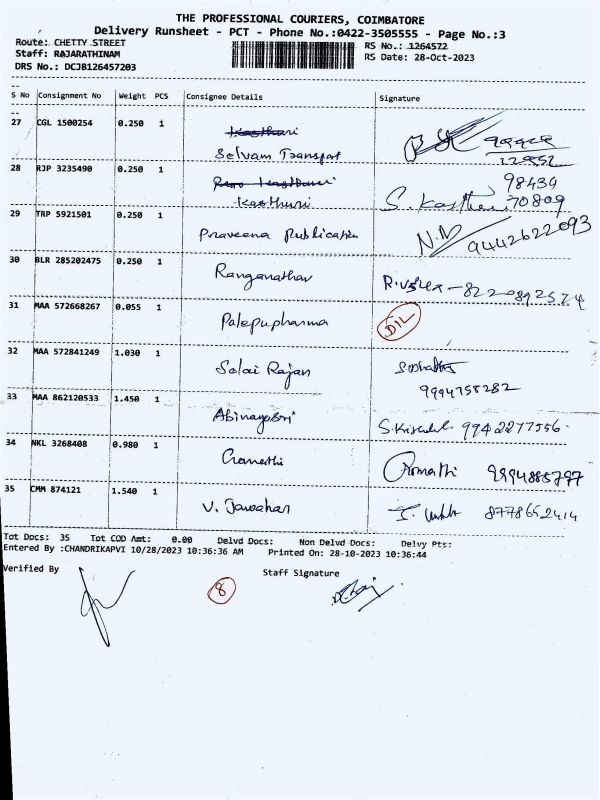 THE PROFESSIONAL COURIERS, COIMBATORE
Delivery Runsheet - PCT - Phone No.:0422-3505555 - Page No.:3
Route: CHETTY STREET RS No.: 1264572
Staff: RAJARATHINAM RS Date: 28-Oct-2023
DRS No.: DCJB126457203
S No Consignment No Weight PCS Consignee Details Signature
27 CGL 1500254 0.250 1 Kasthuri
Selvam Transport
28 RJP 3235490 0.250 1 Kasthuri 98434
Kasthuri S. Kasthuri 70809
29 TRP 5921501 0.250 1 Praveena Publication 9442622093
30 BLR 285202475 0.250 1 Ranganathan
31 MAA 572668267 0.055 1 Palepupharma DIL
32 MAA 572841249 1.030 1 Salai Rajan
9994758282
33 MAA 862120533 1.450 1 Abinayasri 9942277556
34 NKL 3268408 0.980 1 Gomathi Gomathi 9994885797
35 CMM 874121 1.540 1 V. Jawahar 8778652414
Tot Docs: 35 Tot COD Amt: 0.00 Delvd Docs: Non Delvd Docs: Delvy Pts:
Entered By :CHANDRIKAPVI 10/28/2023 10:36:36 AM Printed On: 28-10-2023 10:36:44
Verified By Staff Signature
8